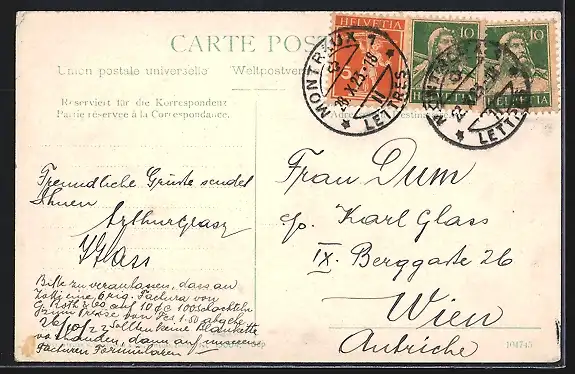 CARTE POSTALE
Union postale universelle Weltpostverein
Reserviert für die Korrespondenz
Partie réservée à la Correspondance.
HELVETIA
5
HELVETIA
10
HELVETIA
10
MONTREUX 1
LETTRES
LETTRES
Freundliche Grüsse sendet
Ihnen
Arthur Glass
Glass
Bitte zu veranlassen, dass an
eine orig. Factura von
G. Roth auf 10
zum Preise von 1.50 abgeht
sollten keine Blankette
vorhanden, dann auf unseren
Facturen Formularen
Frau Dum
c/o. Karl Glass
IX. Berggasse 26
Wien
Autriche
104745